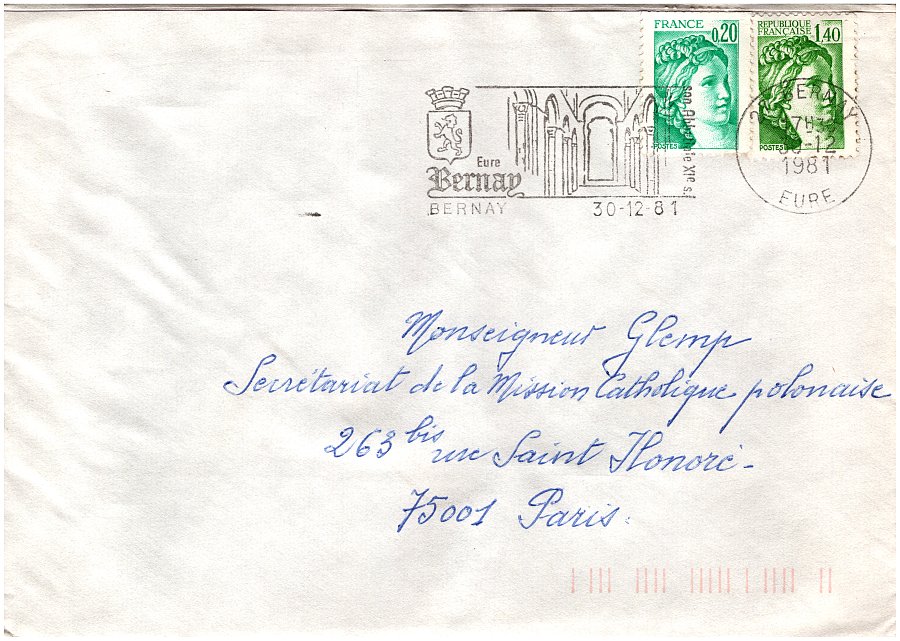 FRANCE
0,20
POSTES
REPUBLIQUE
FRANÇAISE
1,40
POSTES
Eure
Bernay
BERNAY 30-12-81
XIe s
27 BERNAY
30-12
1981
EURE
Monseigneur Glemp
Secrétariat de la Mission Catholique polonaise
263 bis rue Saint Honoré -
75001 Paris.